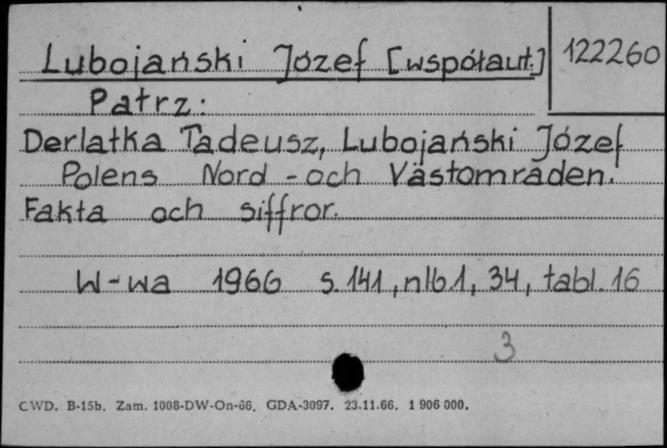 Lubojański Józef [współaut.] 122260
Patrz:
Derlatka Tadeusz, Lubojański Józef
Polens Nord-och Västområden.
Fakta och siffror.
W-wa 1966 s. 141, nlb 1, 34, tabl. 16
3
CWD. B-15b. Zam. 1008-DW-On-66. GDA-3097. 23.11.66. 1 906 000.